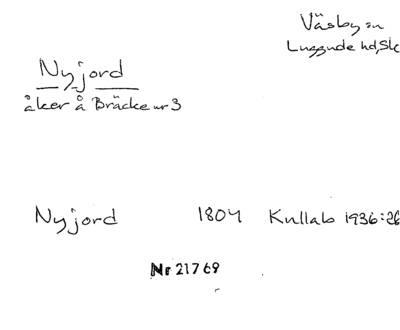 Väsby sn
Luggude hd, Sk
Nyjord
åker å Bräcke nr 3
Nyjord 1804 Kullab 1936:26
Nr 21769